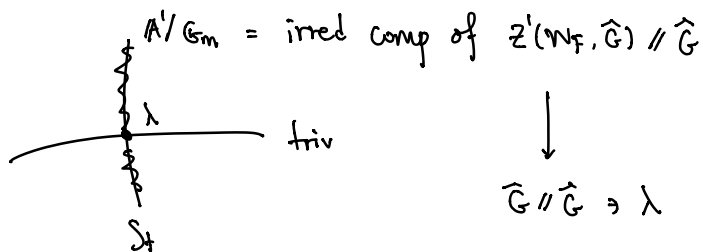 A¹/G_m = irred comp of Z¹(W_F, Ĝ) // Ĝ
λ
triv
Ĝ // Ĝ ∋ λ
St